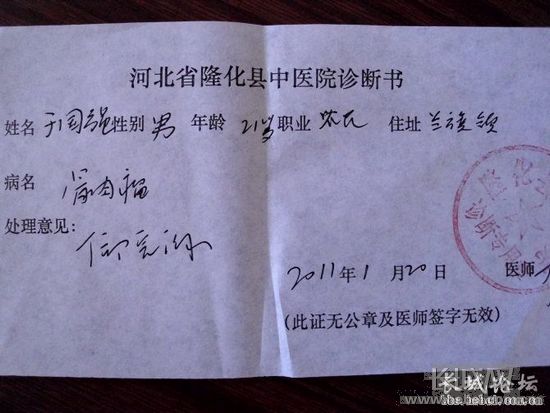 河北省隆化县中医院诊断书
姓名 于国强 性别 男 年龄 21岁 职业 农民 住址
病名 肉瘤
处理意见:
2011年1月20日 医师
(此证无公章及医师签字无效)
隆化
诊断专用
长城论坛